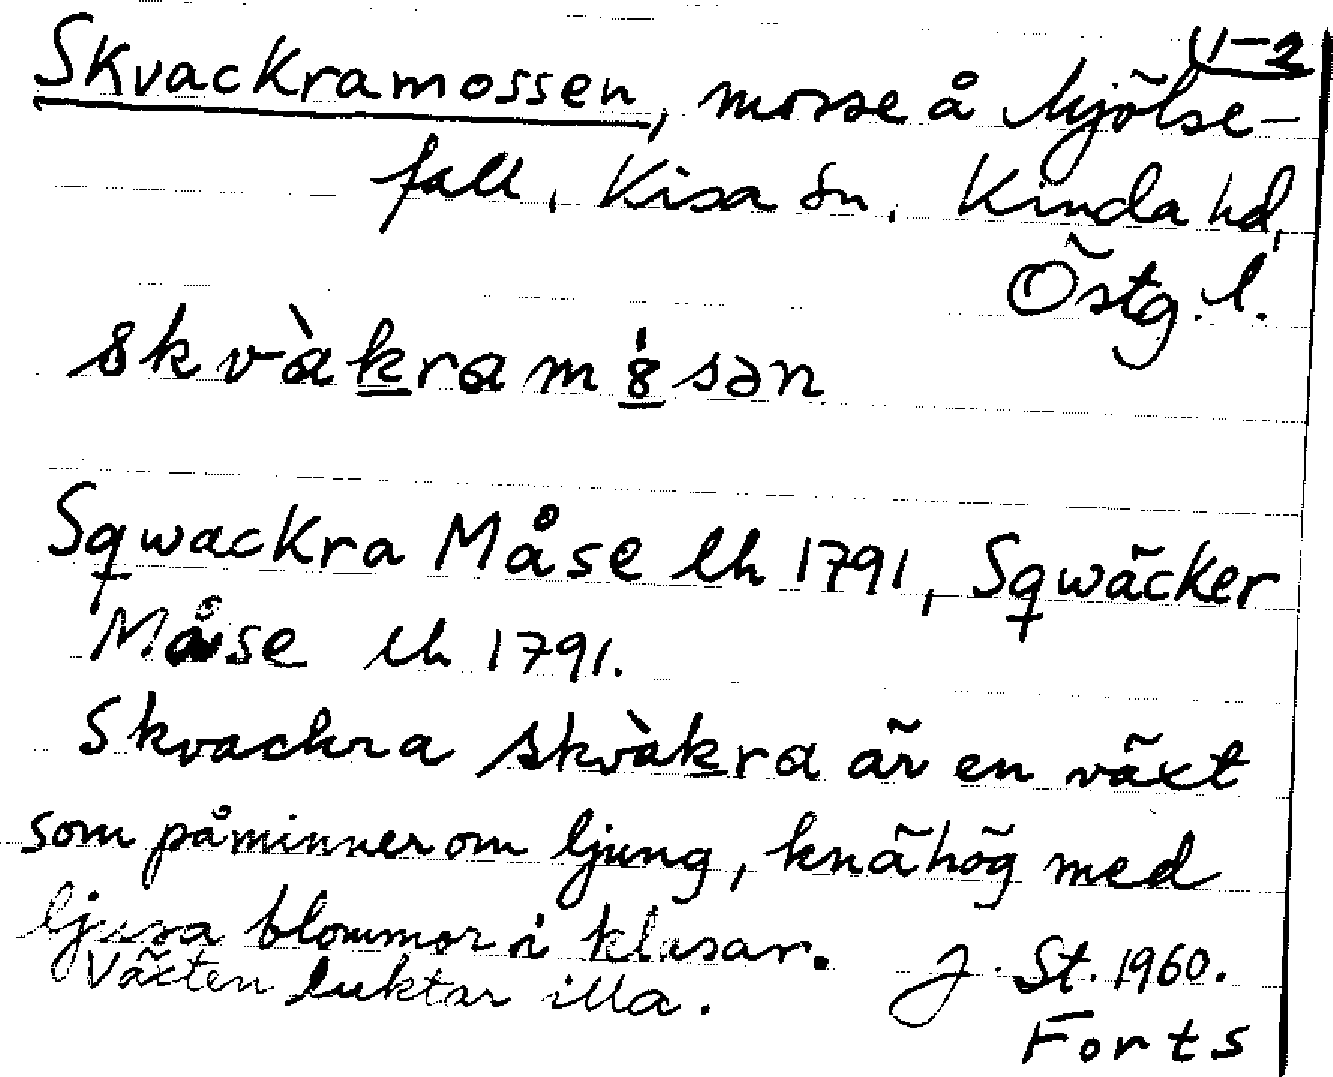 U-2
Skvackramossen, mosse å Mjölse-
fall, Kisa sn. Kinda hd,
Östg. l.
skvàkramósən
Sqwackra Måse lh 1791, Sqwäcker
Måse lh 1791.
Skvackra skvàkra är en växt
som påminner om ljung, knähög med
ljusa blommor i klasar.
Växten luktar illa. J. St. 1960.
Forts